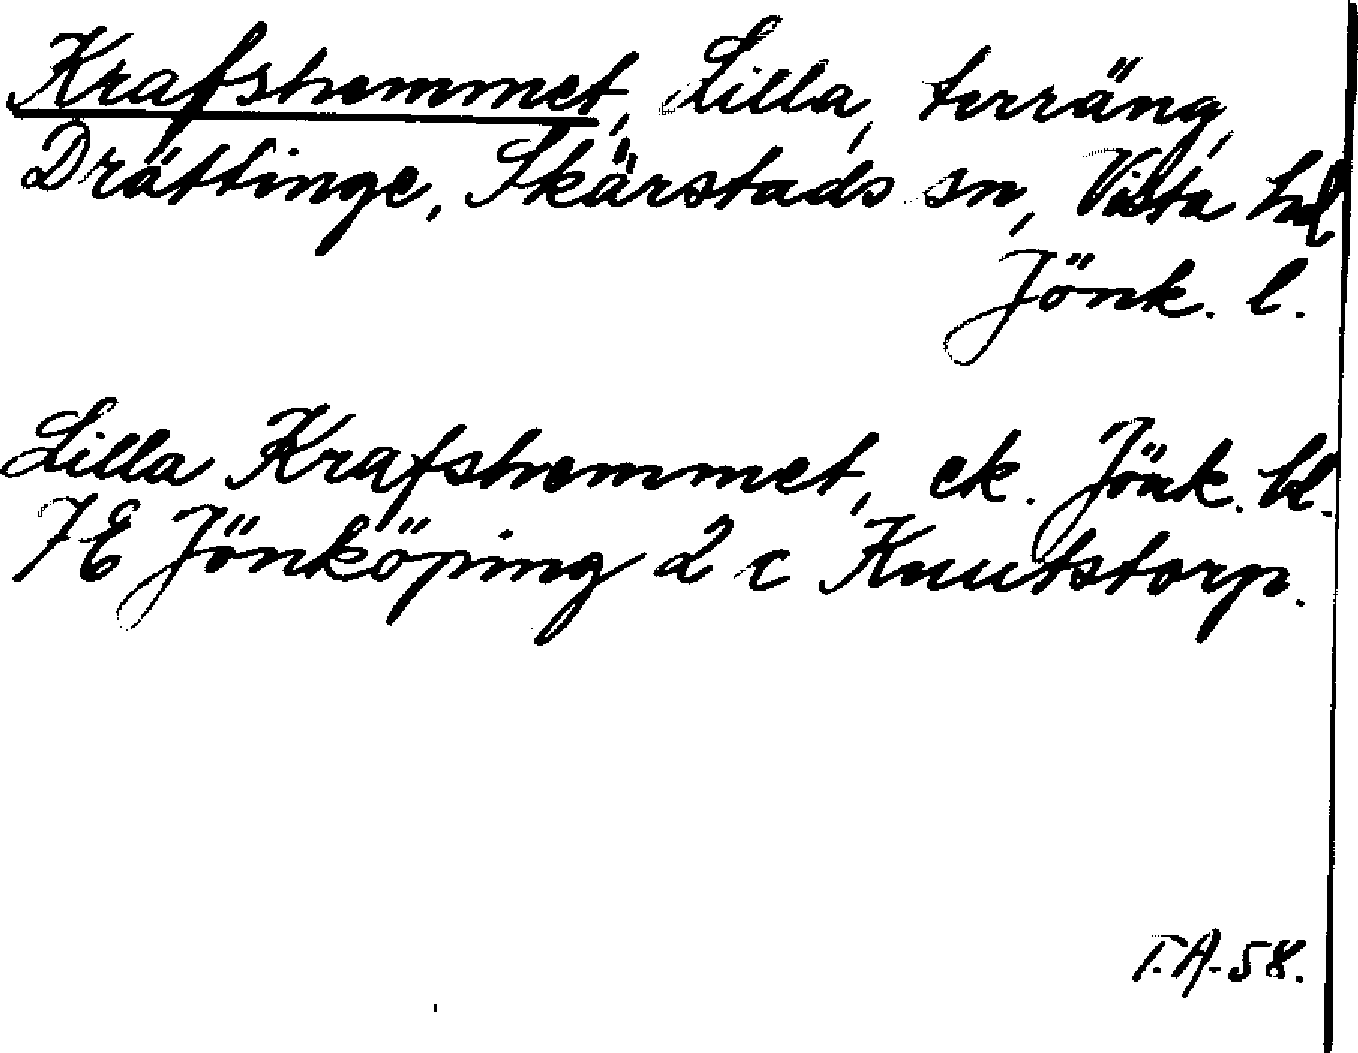 Krafshemmet, Lilla, terräng,
Drättinge, Skärstads sn, Vista hd
Jönk. l.
Lilla Krafshemmet, ek. Jönk. bl.
7E Jönköping 2 c Knutstorp.
T.A. 58.